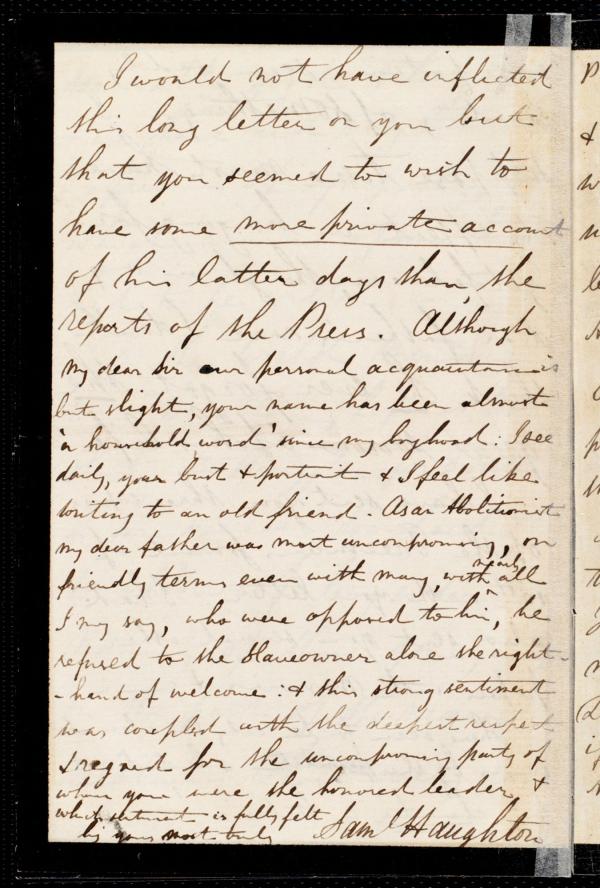 I would not have inflicted
this long letter on you but
that you seemed to wish to
have some more private account
of his latter days than the
reports of the Press. Although
my dear Sir our personal acquaintance is
but slight, your name has been almost
'a household word' since my boyhood: I see
daily, your bust & portrait & I feel like
writing to an old friend. As an Abolitionist
my dear father was most uncompromising, on
friendly terms even with many, with nearly all
I may say, who were opposed to him, he
refused to the Slaveowner alone the right-
-hand of welcome: & this strong sentiment
was coupled with the deepest respect
& regard for the uncompromising party of
whom you were the honored leader, &
which sentiment is fully felt
by yours most truly Saml Haughton